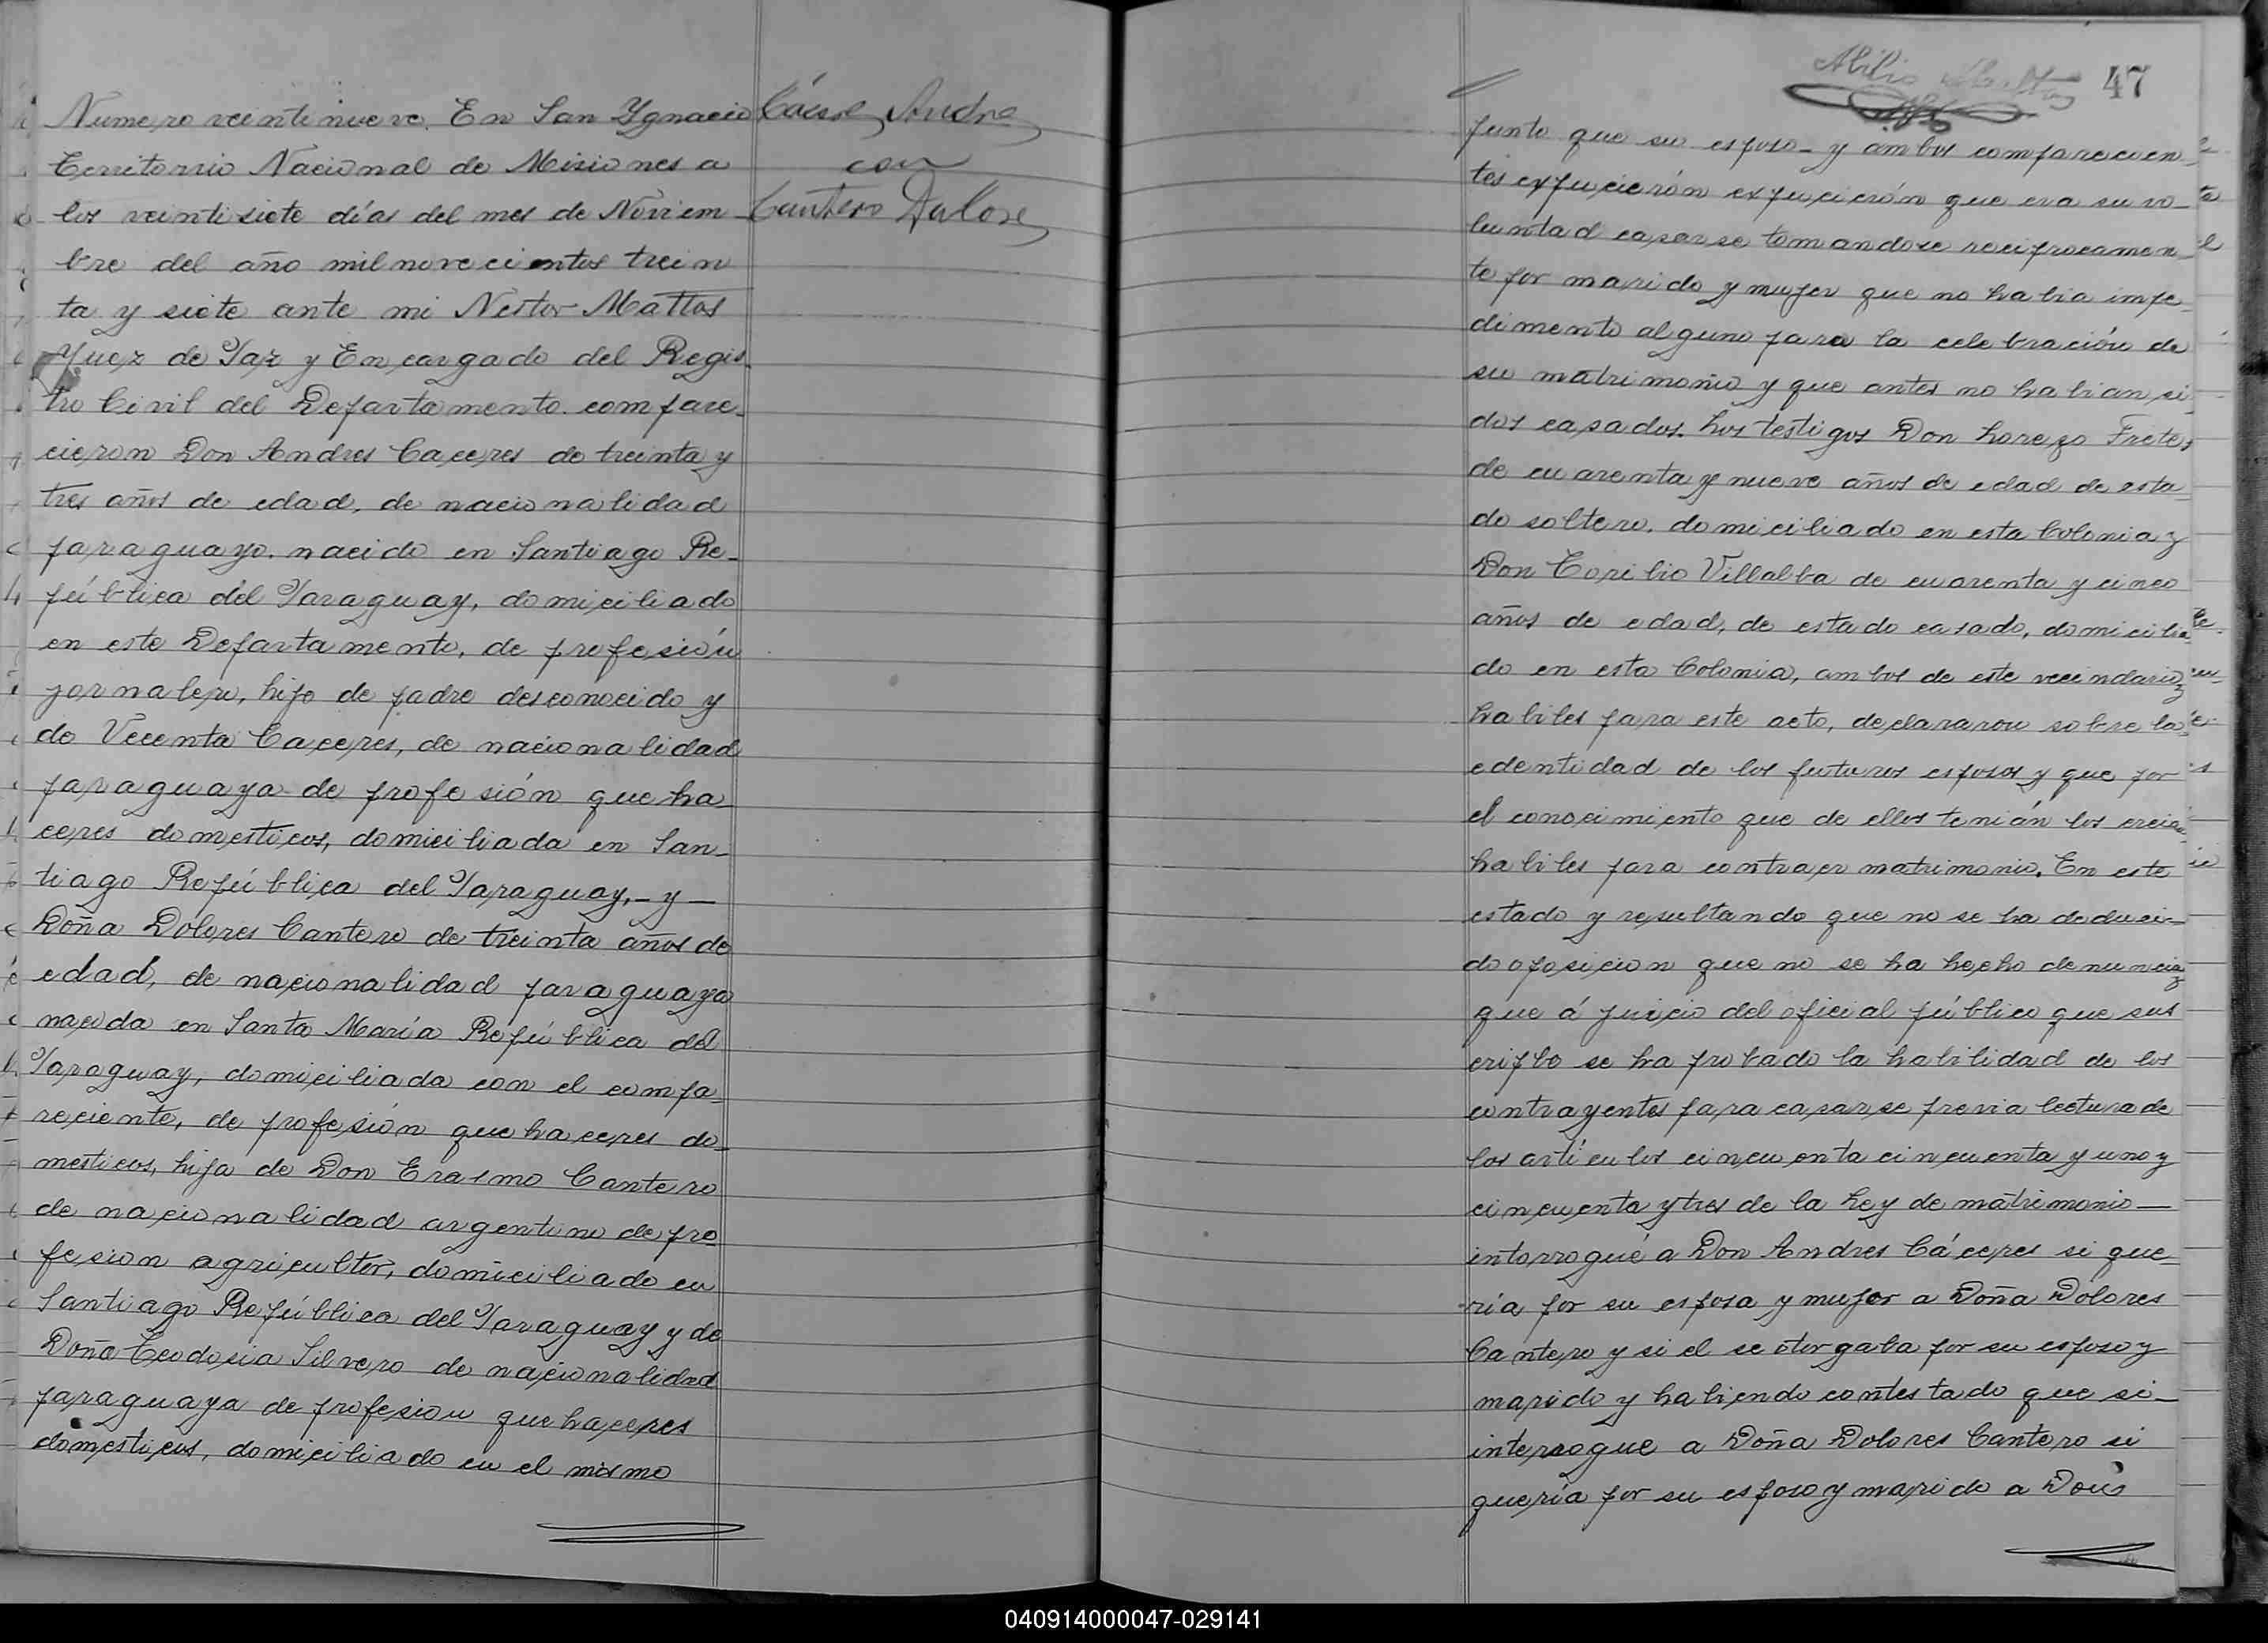 Numero veintinueve. En San Ygnacio
Territorio Nacional de Misiones a
los veintisiete días del mes de Noviem
bre del año mil novecientos trein
ta y siete ante mi Nestor Mattos
Juez de Paz y Encargado del Regis-
tro Civil del Departamento. compare-
cieron Don Andres Caceres de treinta y
tres años de edad, de nacionalidad
paraguayo. nacido en Santiago Re-
pública del Paraguay, domiciliado
en este Departamento, de profesión
jornalero, hijo de padre desconocido y
de Vecenta Caceres, de nacionalidad
paraguaya de profesión queha-
ceres domesticos, domiciliada en San-
tiago República del Paraguay,- y -
Doña Dolores Cantero de treinta años de
edad, de nacionalidad paraguaya
nacida en Santa María República del
Paraguay, domiciliada con el compa-
reciente, de profesión quehaceres do-
mesticos, hija de Don Erasmo Cantero
de nacionalidad argentino de pro-
fesion agricultor, domiciliado en
Santiago República del Paraguay y de
Doña Teodosia Silvero de nacionalidad
paraguaya de profesion quehaceres
domesticos, domiciliado en el mismo
Andres
con
Cantero Dolores
47
punto que su esposo- y ambos comparecien-
tes expucierón expucierón que era su vo-
luntad casarse tomandose reciprocamen-
te por marido y mujer que no habia impe-
dimento alguno para la celebración de
su matrimonio y que antes no habian si-
dos casados. Los testigos Don Lorenzo Fretes
de cuarenta y nueve años de edad de esta-
do soltero. domiciliado en esta Colonia y
Don Toribio Villalba de cuarenta y cinco
años de edad, de estado casado, domicilia-
do en esta Colonia, ambos de este vecindario y
habiles para este acto, declararon sobre la
edentidad de los futuros esposos y que por
el conocimiento que de ellos tenián los creian
habiles para contraer matrimonio. En este
estado y resultando que no se ha deduci-
do oposicion que no se ha hecho denuncia y
que á juicio del oficial público que sus
cripbe se ha probado la habilidad de los
contrayentes para casarse previa lectura de
los artículos cincuenta cincuenta y uno y
cincuenta y tres de la Ley de matrimonio-
intorrogué a Don Andres Cáceres si que-
ría por su esposa y mujer a Doña Dolores
Cantero y si el se otorgaba por su esposo y
marido y habiendo contestado que si-
interrogue a Doña Dolores Cantero si
quería por su esposo y marido a Don
040914000047-029141